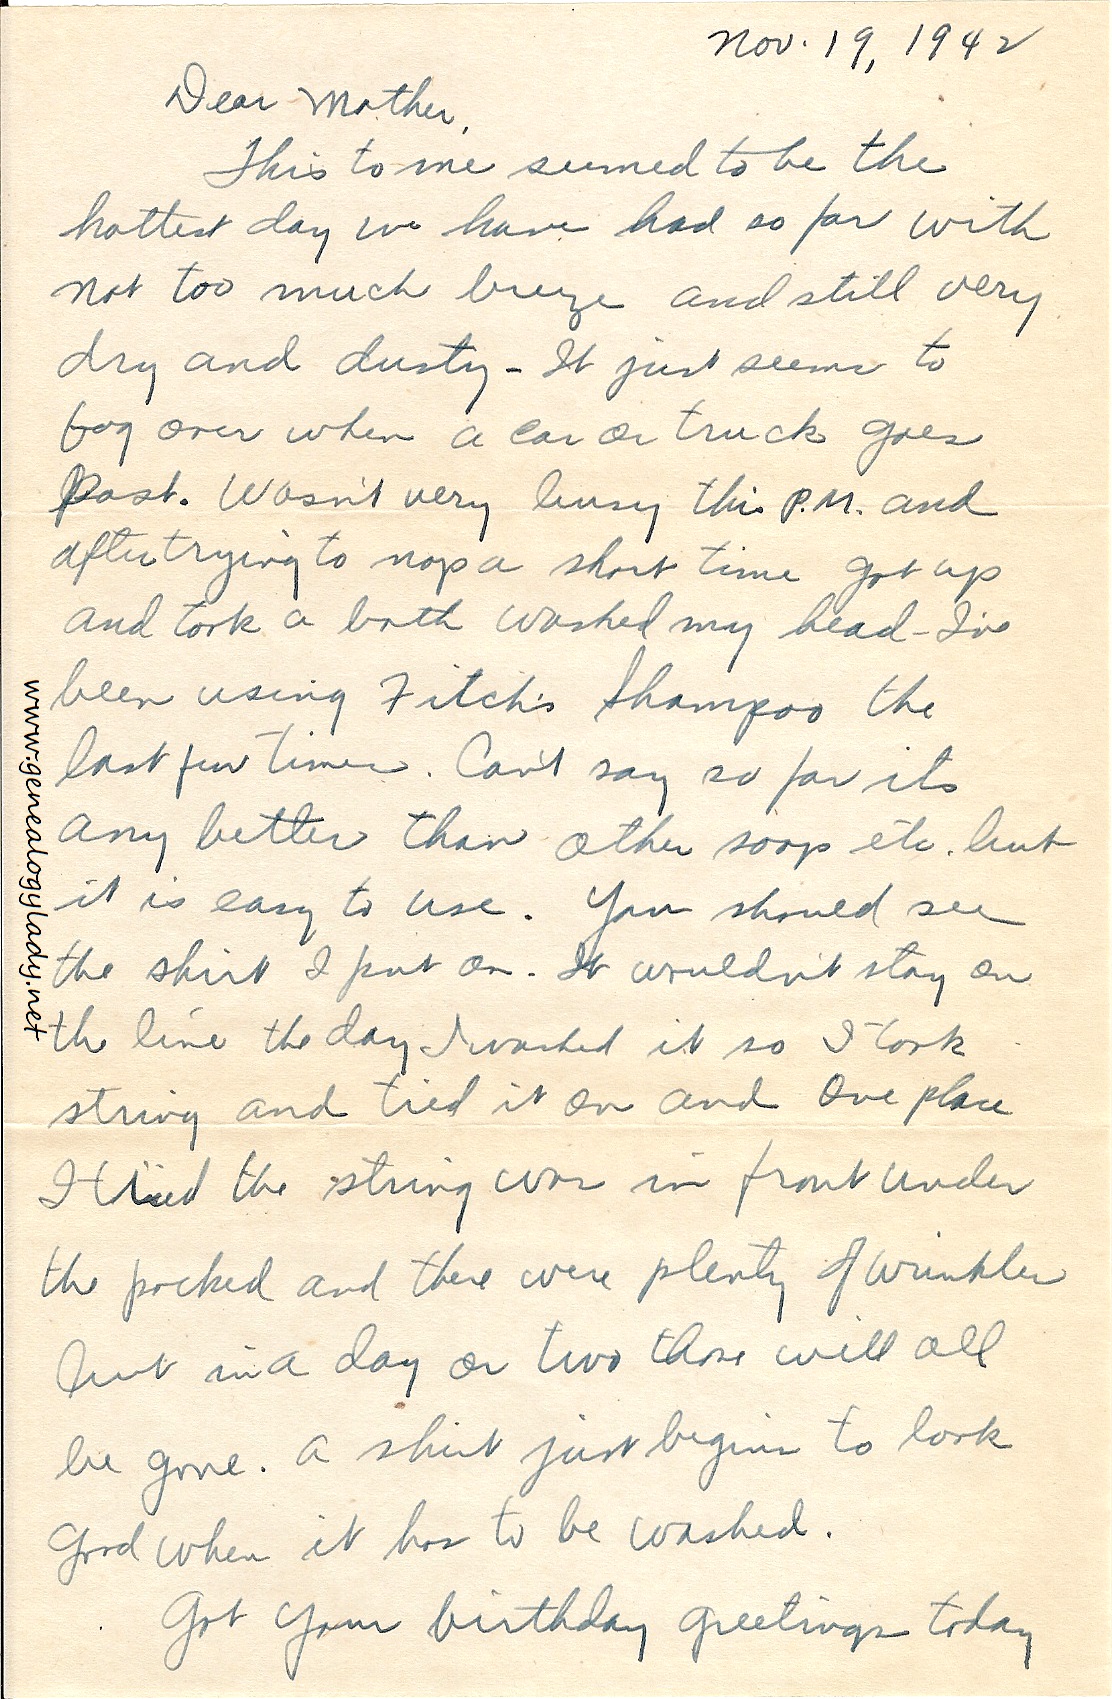 Nov. 19, 1942
Dear Mother,
This to me seemed to be the
hottest day we have had so far with
not too much breeze and still very
dry and dusty - It just seems to
fog over when a car or truck goes
past. Wasn't very busy this P.M. and
after trying to nap a short time got up
and took a bath washed my head - I've
been using Fitch's Shampoo the
last few times. Can't say so far its
any better than other soap etc. but
it is easy to use. You should see
the shirt I put on. It wouldn't stay on
the line the day I washed it so I took
string and tied it on and one place
I tied the string was in front under
the pocked and there were plenty of wrinkles
but in a day or two those will all
be gone. A shirt just begins to look
good when it has to be washed.
Got your birthday greetings today
www.genealogylady.net